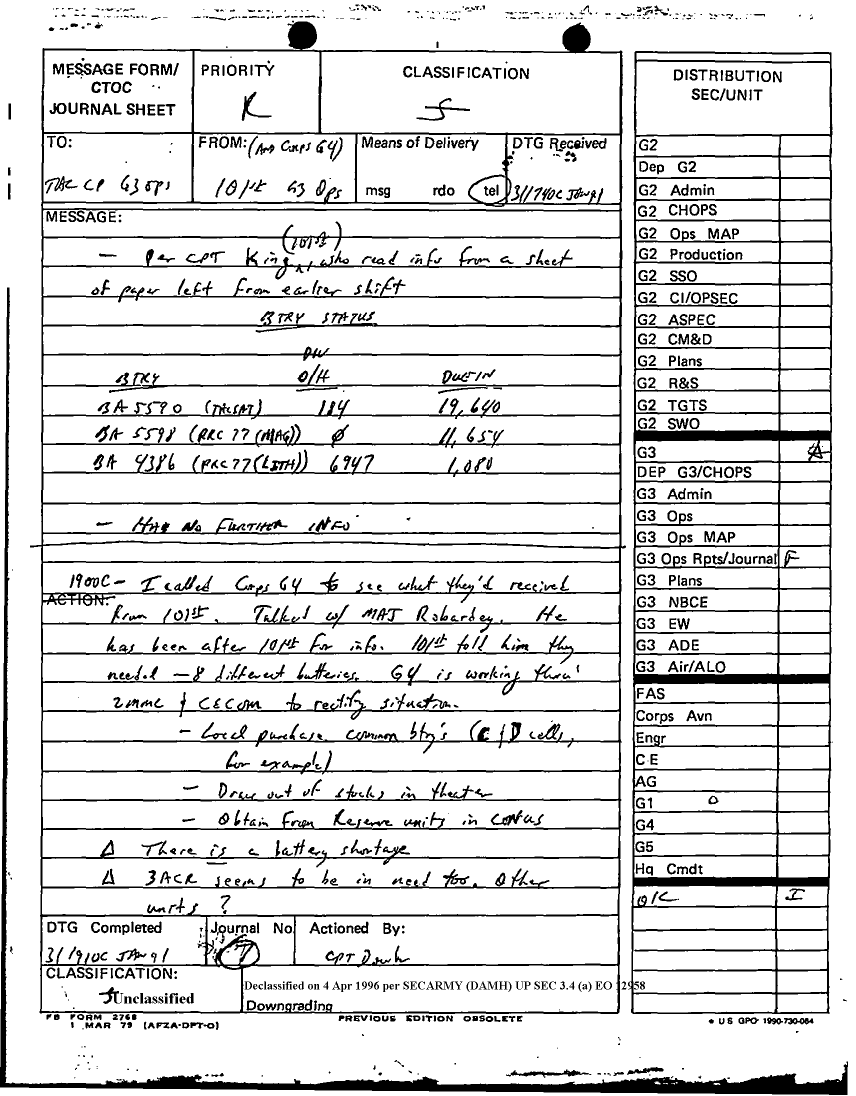 MESSAGE FORM/ CTOC JOURNAL SHEET
PRIORITY
R
CLASSIFICATION
S
TO:
TAC CP G3 OPS
FROM: (And Corps G4)
101st G3 Ops
Means of Delivery
msg rdo tel
DTG Received
311740C JAN 91
MESSAGE:
(101st)
— Per CPT King, who read info from a sheet
of paper left from earlier shift
BTRY STATUS
DIV
BTRY O/H DUE IN
BA 5590 (TACSAT) 184 19,640
BA 5598 (PRC 77 (MAG)) Ø 11,654
BA 4386 (PRC 77 (LITH)) 6947 1,080
— HAS NO FURTHER INFO
1900C — I called Corps G4 to see what they'd received
ACTION:
from 101st. Talked w/ MAJ Robardey. He
has been after 101st for info. 101st told him they
needed — 8 different batteries. G4 is working thru'
2MMC & CECOM to rectify situation.
— Local purchase common bty's (C & D cells,
for example)
— Draw out of stocks in theater
— Obtain from Reserve units in CONUS
Δ There is a battery shortage
Δ 3ACR seems to be in need too. Other
units?
DTG Completed
311910C JAN 91
Journal No
7
Actioned By:
CPT
CLASSIFICATION:
S Unclassified
Declassified on 4 Apr 1996 per SECARMY (DAMH) UP SEC 3.4 (a) EO 12958
Downgrading
FB FORM 2768
1 MAR 79 (AFZA-DPT-O)
PREVIOUS EDITION OBSOLETE
DISTRIBUTION
SEC/UNIT
G2
Dep G2
G2 Admin
G2 CHOPS
G2 Ops MAP
G2 Production
G2 SSO
G2 CI/OPSEC
G2 ASPEC
G2 CM&D
G2 Plans
G2 R&S
G2 TGTS
G2 SWO
G3
DEP G3/CHOPS
G3 Admin
G3 Ops
G3 Ops MAP
G3 Ops Rpts/Journal F
G3 Plans
G3 NBCE
G3 EW
G3 ADE
G3 Air/ALO
FAS
Corps Avn
Engr
C E
AG
G1
G4
G5
Hq Cmdt
OIC I
* US GPO 1990-730-064